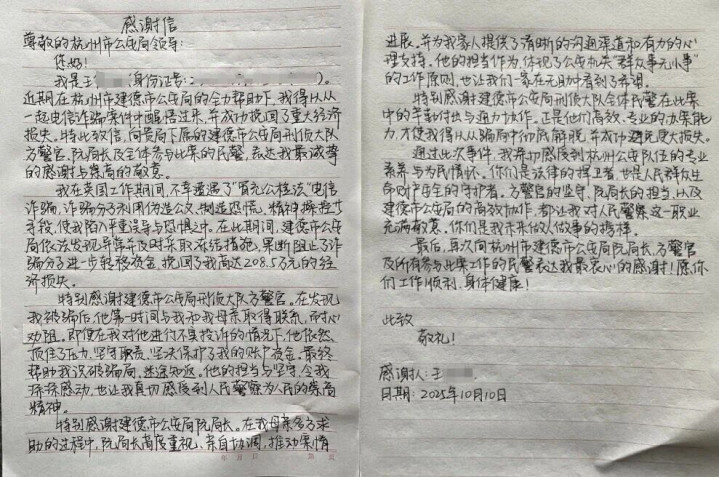 感谢信
尊敬的杭州市公安局领导:
您好!
我是王 (身份证号:2, )。
近期在杭州市建德市公安局的全力帮助下,我得以从
一起电信诈骗案件中醒悟过来,并成功挽回了重大经济
损失。特此致信,向贵局下属的建德市公安局刑侦大队
方警官、阮局长及全体参与此案的民警,表达我最诚挚
的感谢与崇高的敬意。
我在英国工作期间,不幸遭遇了“冒充公检法”电信
诈骗,诈骗分子利用伪造公文、制造恐慌、精神操控等
手段,使我陷入严重误导与恐惧之中。在此期间,建德市公安
局依法发现异常并及时采取冻结措施,果断阻止了诈
骗分子进一步转移资金,挽回了我高达208.5万元的经
济损失。
特别感谢建德市公安局刑侦大队方警官。在发现
我被骗后,他第一时间与我和我母亲取得联系,耐心
劝阻。即便在我对他进行不实投诉的情况下,他依然
顶住了压力,坚守职责,坚决保护了我的账户资金,最终
帮助我识破骗局,迷途知返。他的担当与坚守,令我
深深感动,也让我真切感受到人民警察为人民的崇高
精神。
特别感谢建德市公安局阮局长。在我母亲多方求
助的过程中,阮局长高度重视、亲自协调,推动案情
年 月 日 第 页
进展。并为我家人提供了清晰的沟通渠道和有力的心
理支持。他的担当作为,体现了公安机关“群众事无小事”
的工作原则,也让我们一家在无助中看到了希望。
特别感谢建德市公安局刑侦大队全体民警在此案
中的辛勤付出与通力协作。正是他们高效、专业的办案能
力,才使我得以从骗局中彻底解脱,并成功避免更大损失。
通过此次事件,我深切感受到杭州公安队伍的专业
素养与为民情怀。你们是法律的捍卫者,也是人民群众生
命财产安全的守护者。方警官的坚守、阮局长的担当,以及
建德市公安局的高效协作,都让我对人民警察这一职业
充满敬意。你们是我未来的人做事的榜样。
最后,再次向杭州市建德市公安局阮局长、方警官
及所有参与此案工作的民警表达我最衷心的感谢!愿你
们工作顺利,身体健康!
此致
敬礼!
感谢人:王
日期:2025年10月10日